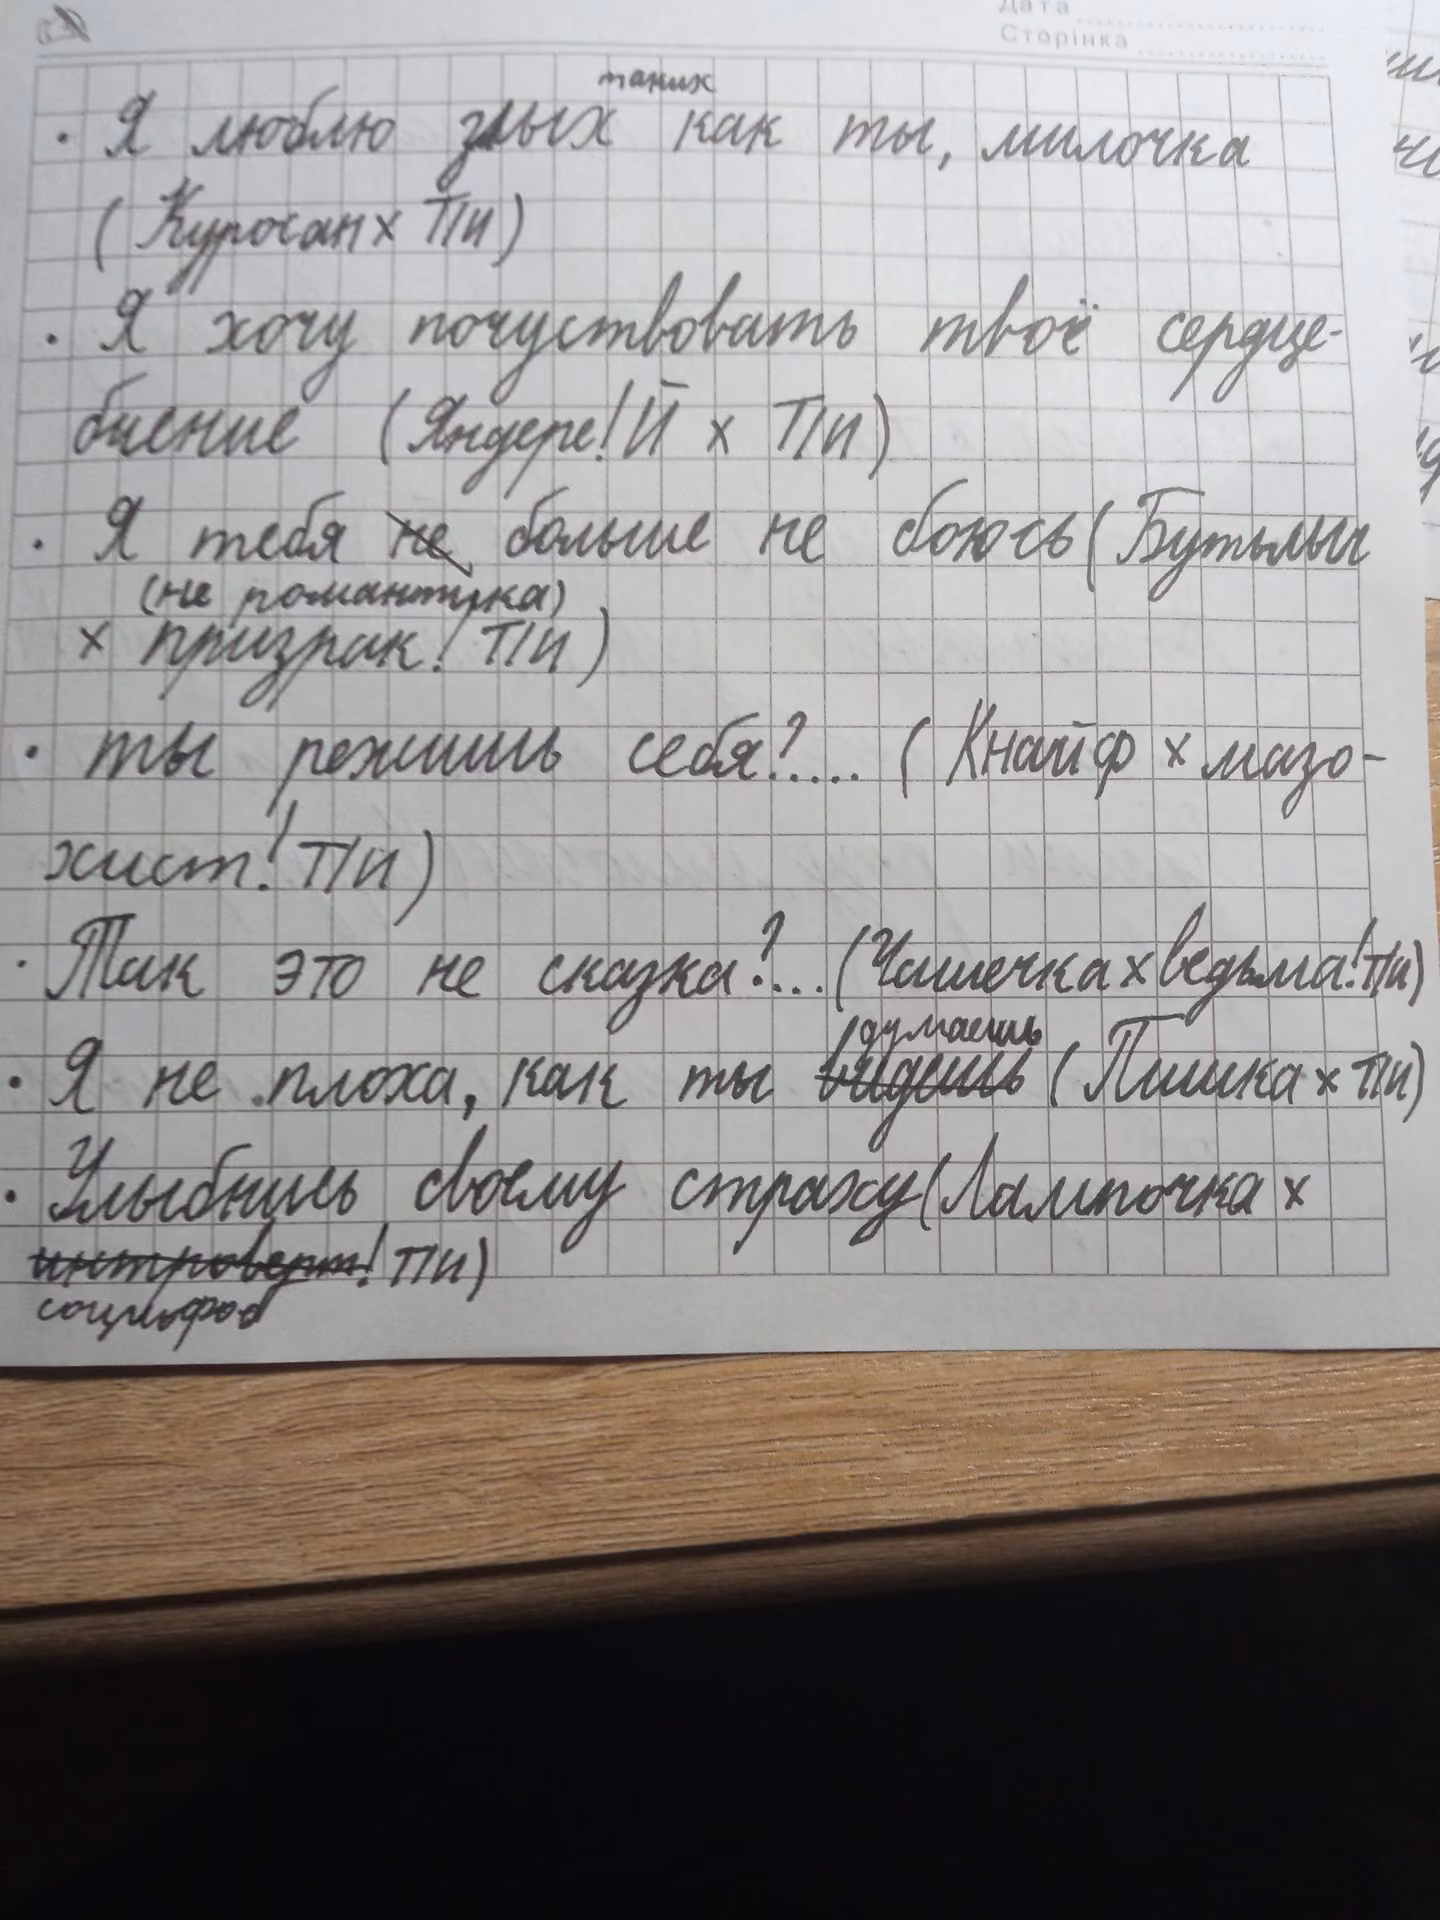 Дата
Сторінка
таких
• Я люблю злых как ты, милочка
(Куросан х Т/и)
• Я хочу почуствовать твоё сердце-
биение (Яндере! Й х Т/и)
• Я тебя не больше не боюсь (Бутылыч
(не романтика)
х призрак! Т/и)
• ты режишь себя?.... (Кнайф х мазо-
хист! Т/и)
• Так это не сказка?... (Чашечка х ведьма! Т/и)
думаешь
• Я не плоха, как ты видишь (Пишка х Т/и)
• Улыбнись своему страху (Лампочка х
интроверт! Т/и)
социофоб